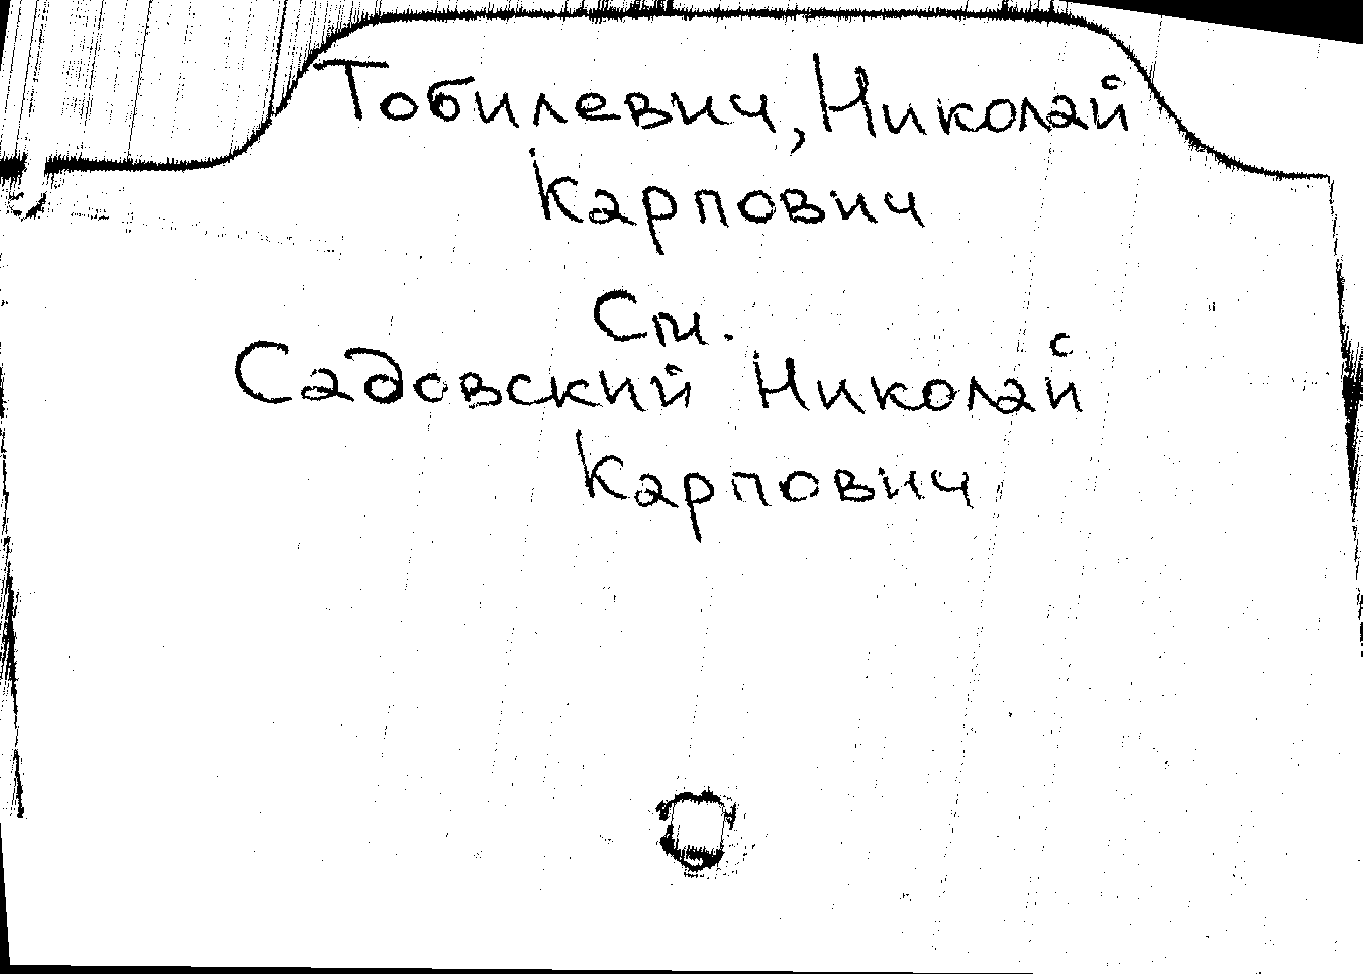 Тобилевич, Николай
Карпович
См.
Садовский Николай
Карпович